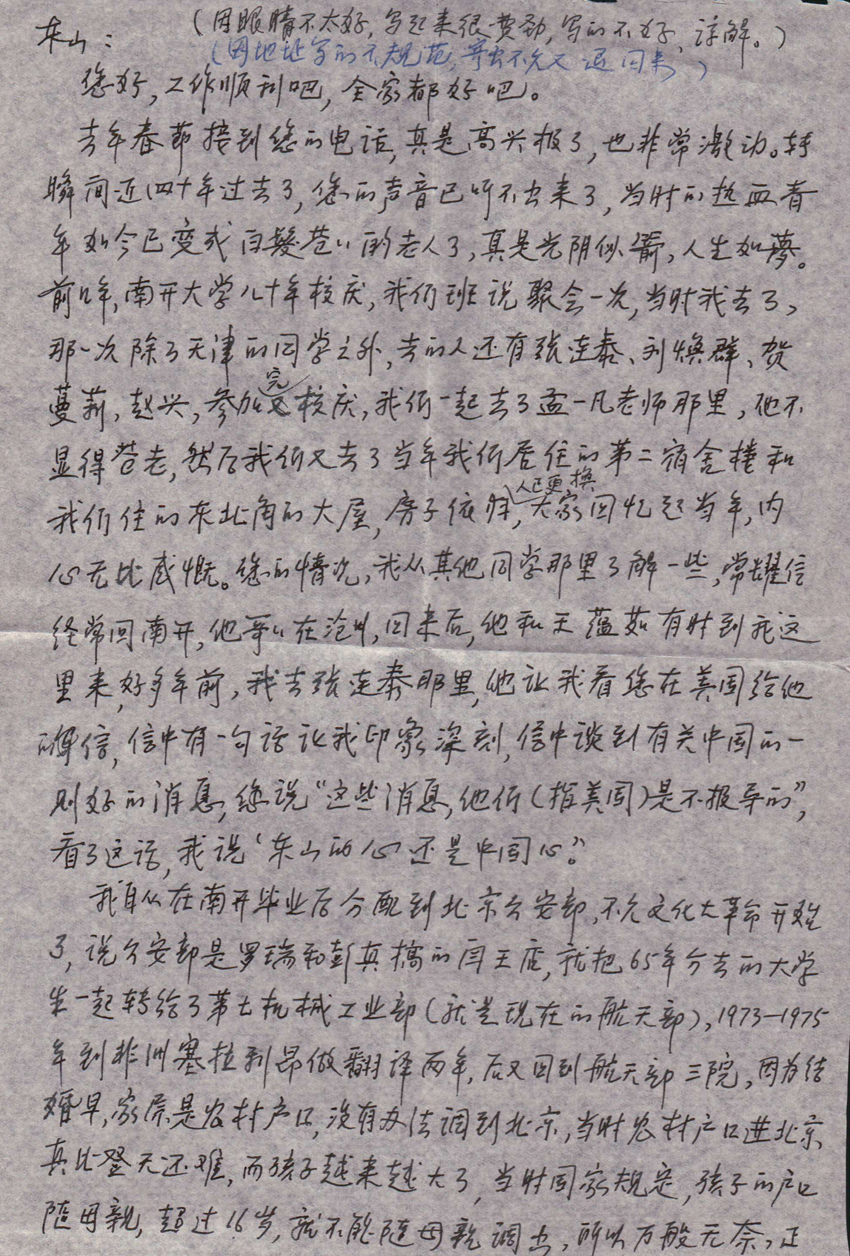 (因眼睛不太好,写起来很费劲,写的不好,谅解。)
东山:
(因地址写的不规范,寄出不久又退回来)
您好,工作顺利吧,全家都好吧。
去年春节接到您的电话,真是高兴极了,也非常激动。转
瞬间近四十年过去了,您的声音已听不出来了,当时的热血青
年如今已变成白发苍苍的老人了,真是光阴似箭,人生如梦。
前年,南开大学八十年校庆,我们班说聚会一次,当时我去了,
那一次除了天津的同学之外,去的人还有张连泰、刘焕群、贺
蔓莉,赵兴,参加完校庆,我们一起去了孟一凡老师那里,他不
显得苍老,然后我们又去了当年我们居住的第二宿舍楼和
我们住的东北角的大屋,房子依归,人已更换 大家回忆起当年,内
心无比感慨。您的情况,我从其他同学那里了解一些,常耀信
经常回南开,他哥哥在沧州,回来后,他和王蕴茹有时到我这
里来,好多年前,我去张连泰那里,他让我看您在美国给他
的信,信中有一句话让我印象深刻,信中谈到有关中国的一
则好的消息,您说“这些消息,他们(指美国)是不报导的”,
看了这话,我说‘东山的心还是中国心’。
我自从在南开毕业后分配到北京公安部,不久文化大革命开始
了,说公安部是罗瑞和彭真搞的闫王店,就把65年分去的大学
生一起转给了第七机械工业部(就是现在的航天部),1973—1975
年到非洲塞拉利昂做翻译两年,后又回到航天部三院,因为结
婚早,家属是农村户口,没有办法调到北京,当时农村户口进北京
真比登天还难,而孩子越来越大了,当时国家规定,孩子的户口
随母亲,超过16岁,就不能随母亲调出,所以万般无奈,正